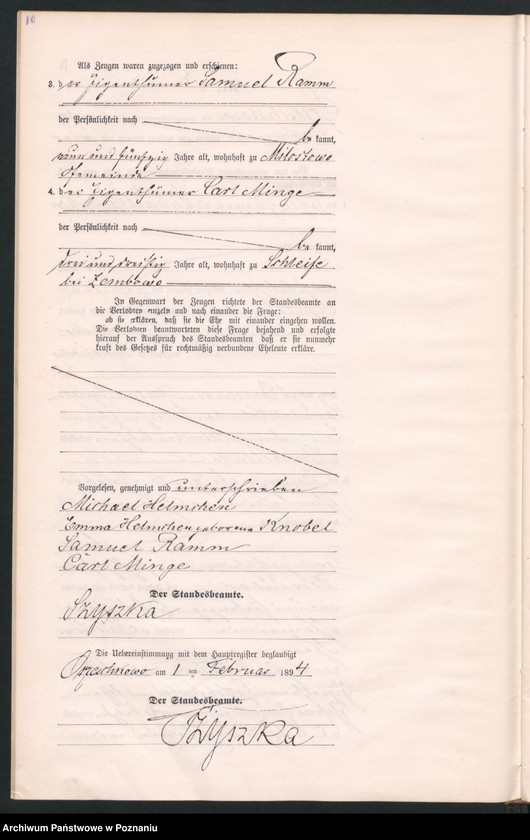 10
Als Zeugen waren zugezogen und erschienen:
3. der Eigenthümer Samuel Ramm
der Persönlichkeit nach
be kannt,
neun und fünfzig Jahre alt, wohnhaft zu Milostowo
Gemeinde
4. der Eigenthümer Carl Minge
der Persönlichkeit nach
be kannt,
drei und dreißig Jahre alt, wohnhaft zu Schleife
bei Zembowo
In Gegenwart der Zeugen richtete der Standesbeamte an
die Verlobten einzeln und nach einander die Frage:
ob sie erklären, daß sie die Ehe mit einander eingehen wollen.
Die Verlobten beantworteten diese Frage bejahend und erfolgte
hierauf der Ausspruch des Standesbeamten, daß er sie nunmehr
kraft des Gesetzes für rechtmäßig verbundene Eheleute erkläre.
Vorgelesen, genehmigt und unterschrieben
Michael Helmchen
Emma Helmchen geborene Knobel
Samuel Ramm
Carl Minge
Der Standesbeamte.
Szyszka
Die Uebereinstimmung mit dem Hauptregister beglaubigt
am 1 ten Februar 1894
Der Standesbeamte.
Szyszka
Archiwum Państwowe w Poznaniu